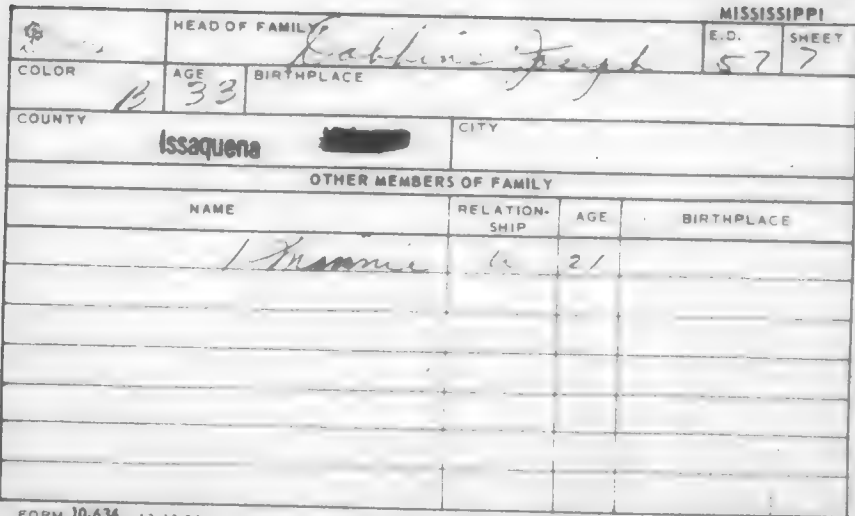 MISSISSIPPI
HEAD OF FAMILY Joseph
E.D. 57
SHEET 7
COLOR B
AGE 33
BIRTHPLACE
COUNTY Issaquena
CITY
OTHER MEMBERS OF FAMILY
NAME RELATION-SHIP AGE BIRTHPLACE
Mannie 21
FORM 10-636